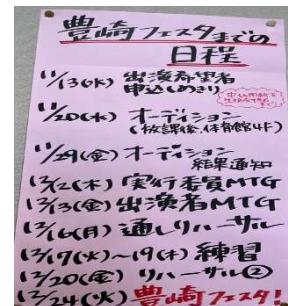 豊崎フェスタまでの
日程
11/13(水) 出演希望者
申込〆めきり
11/20(水) オーディション
(放課後、体育館4F)
11/29(金) オーディション
結果通知
12/12(木) 実行委員MTG
12/13(金) 出演者MTG
12/16(月) 通しリハーサル
12/17(火)~19(木) 練習
12/20(金) リハーサル②
12/24(火) 豊崎フェスタ!